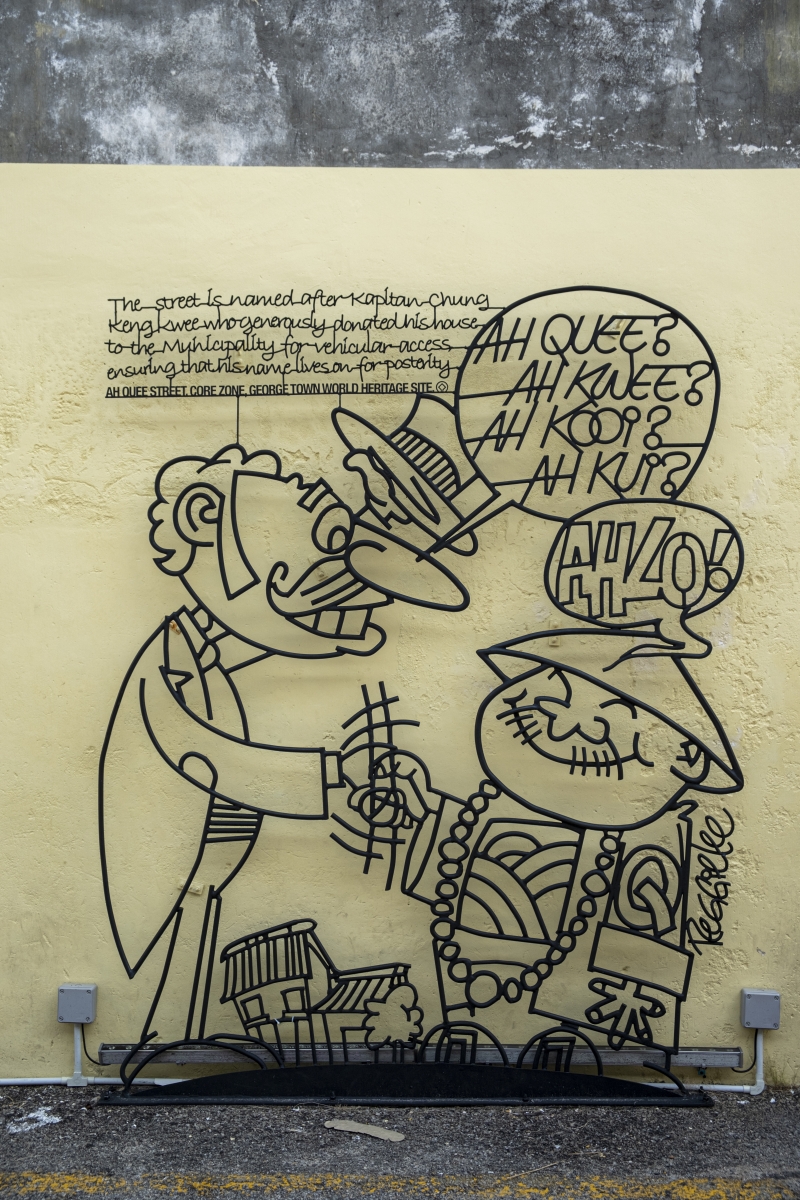 The street is named after Kapitan Chung
Keng Kwee who generously donated his house
to the Municipality for vehicular access
ensuring that his name lives on for posterity
AH QUEE STREET, CORE ZONE, GEORGE TOWN WORLD HERITAGE SITE.
AH QUEE?
AH KWEE?
AH KOOI?
AH KUI?
AHLO!
Q
Reggie Lee